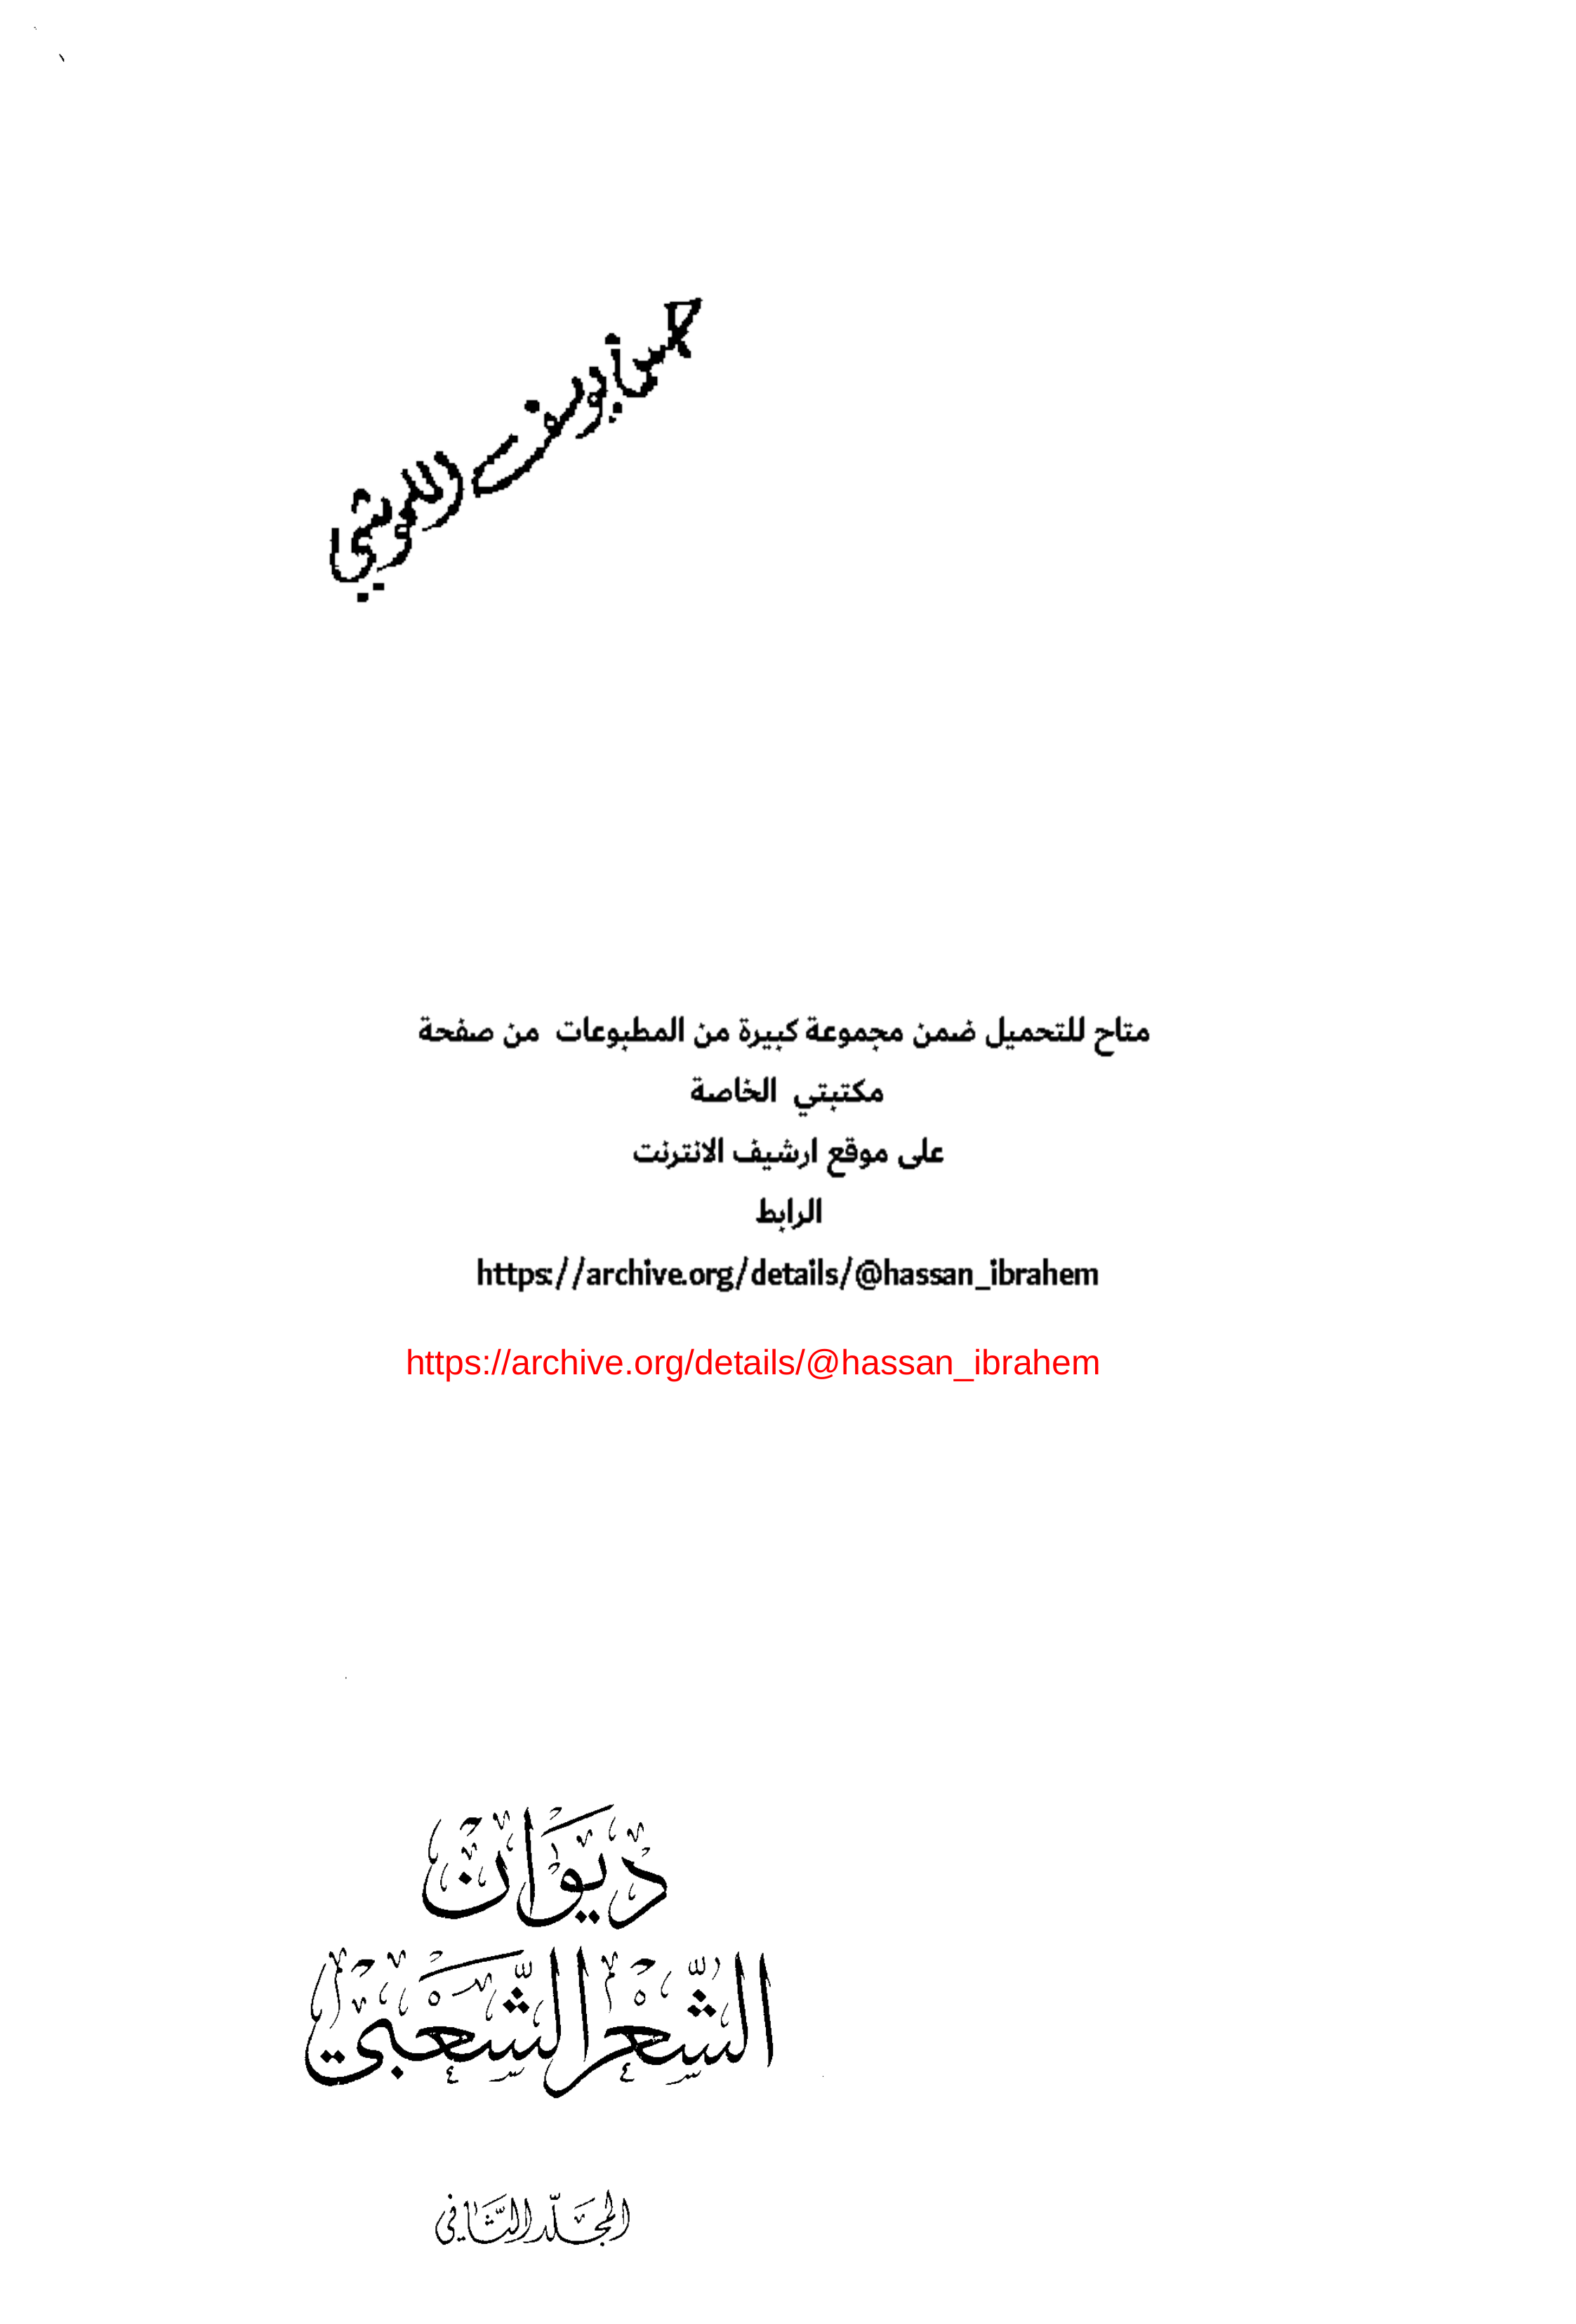 متاح للتحميل ضمن مجموعة كبيرة من المطبوعات من صفحة
مكتبتي الخاصة
على موقع ارشيف الانترنت
الرابط
https://archive.org/details/@hassan_ibrahem
https://archive.org/details/@hassan_ibrahem
ديوان
الشعر الشعبي
المجلد الثاني